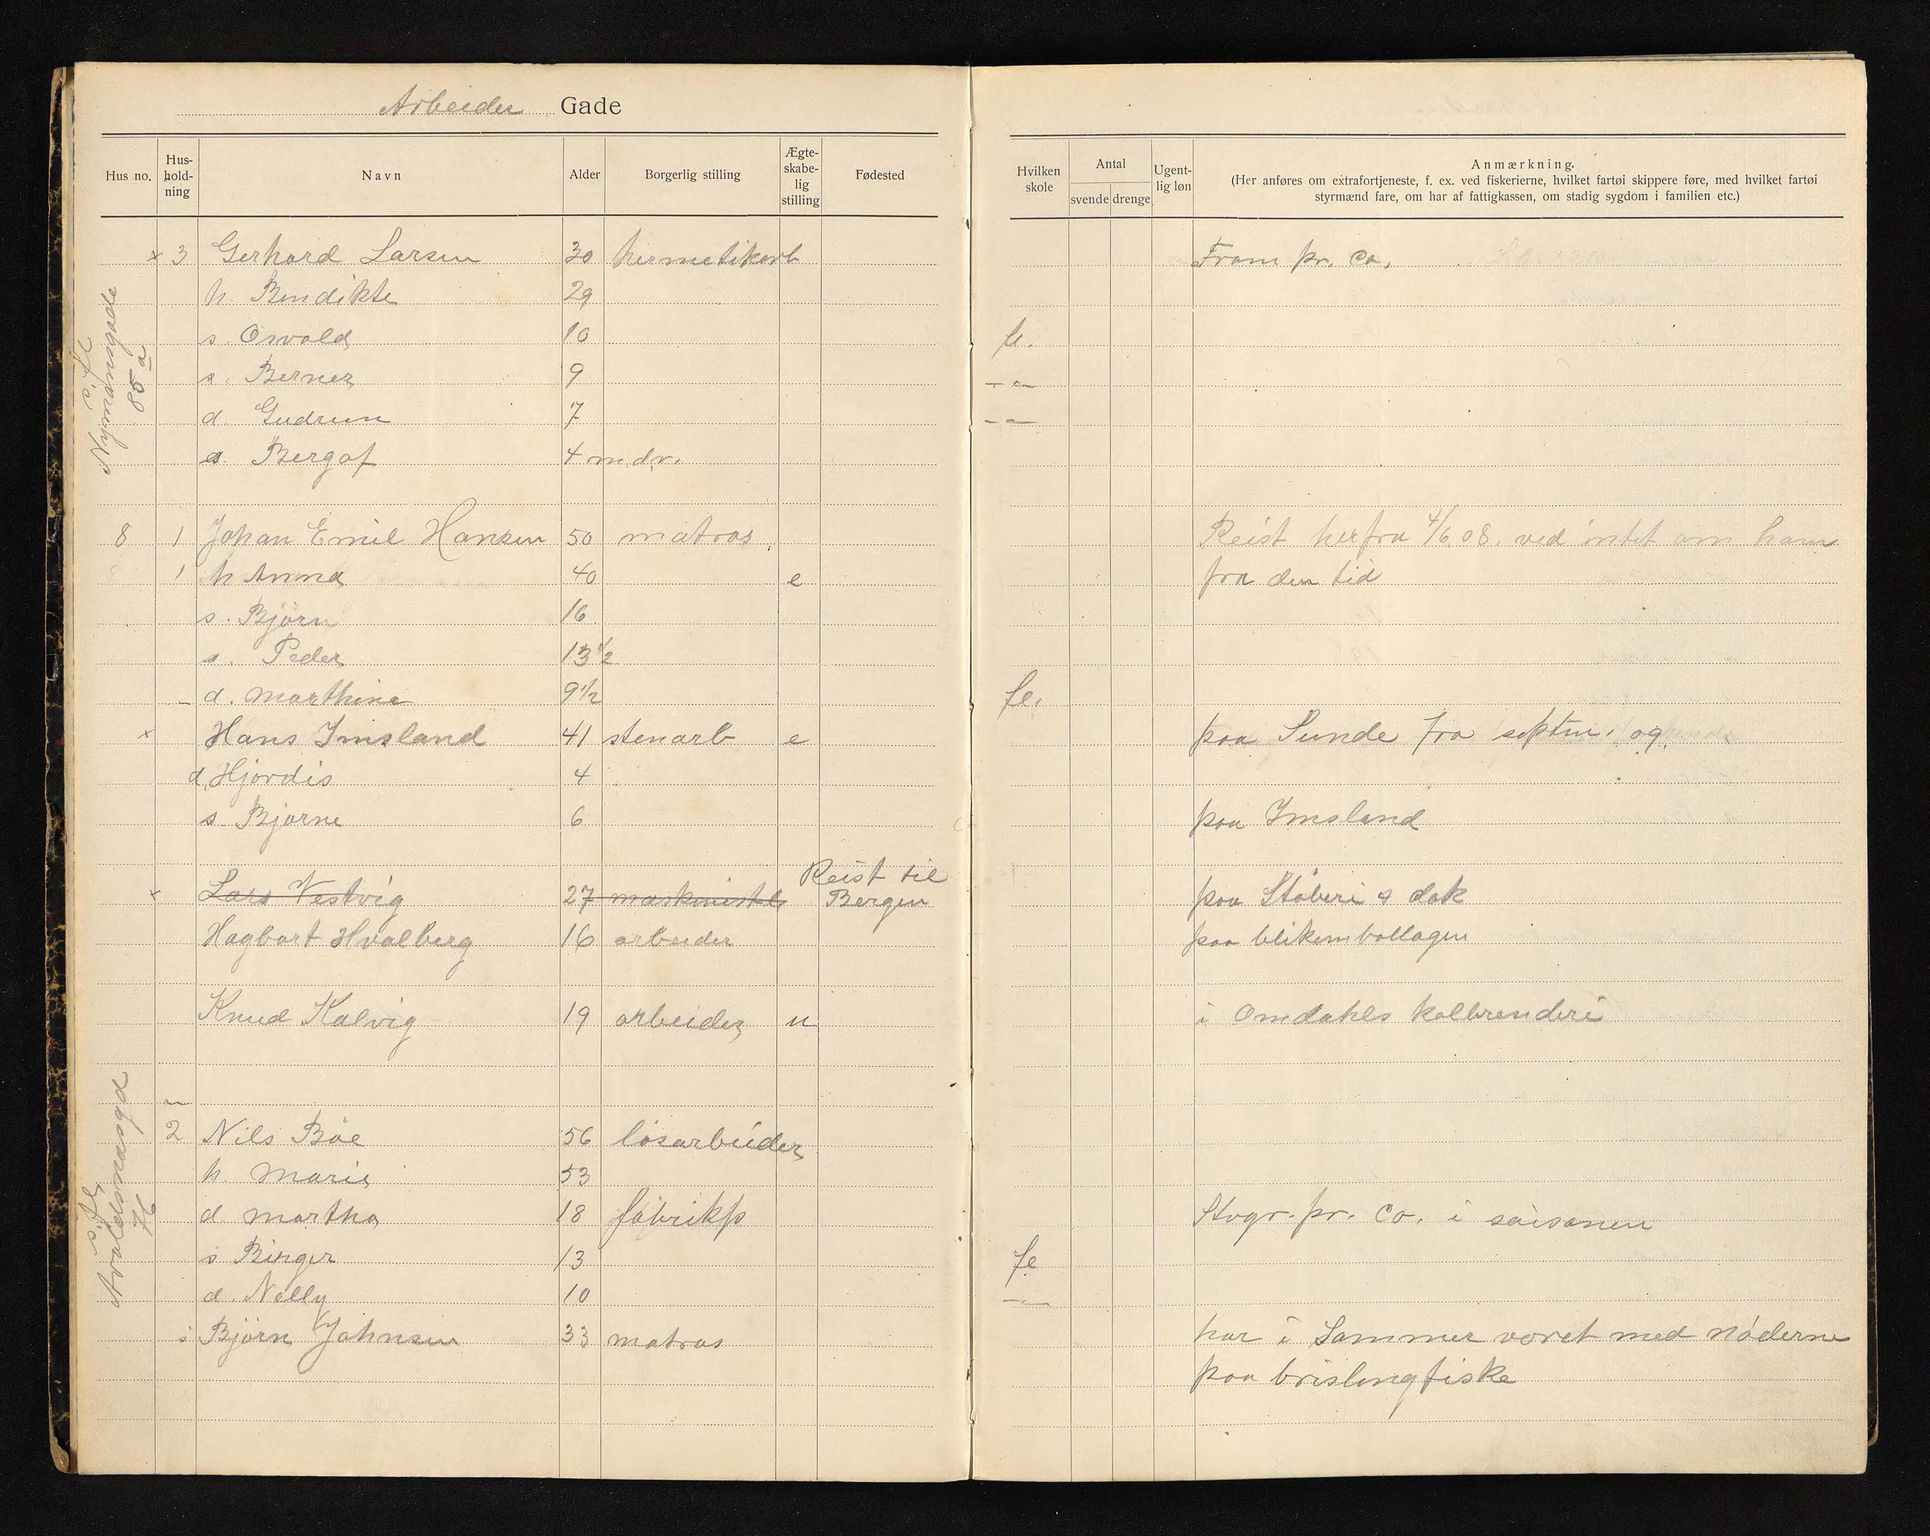 Arbeider Gade
Hus no. Hus-hold-ning Navn Alder Borgerlig stilling Ægte-skabe-lig stilling Fødested Hvilken skole Antal svende drenge Ugent-lig løn Anmærkning.
(Her anføres om extrafortjeneste, f. ex. ved fiskerierne, hvilket fartøi skippere føre, med hvilket fartøi
styrmænd fare, om har af fattigkassen, om stadig sygdom i familien etc.)
× 3 Gerhard Larsen 30 hermetikarb Fram pr. Co.
h. Bendikte 29
s. Osvald 10 fl.
s. Berner 9 – " –
d. Gudrun 7 – –
s. Bergof 4 mdr.
s. fl. Nymansgade 85 a
8 1 Johan Emil Hansen 50 matros. Reist herfra 4/6 08. ved intet om ham
1 h Anna 40 e fra den tid
s. Bjørn 16
s. Peder 13 1/2
– d. Marthine 9 1/2 fl.
× Hans Imsland 41 stenarb e paa Sunde fra septm. og
d. Hjørdis 4
s. Bjarne 6 paa Imsland
× Lars Vestvig 27 maskinist Reist til Bergen paa Støberi & dok
Hagbart Hvalberg 16 arbeider paa blikemballagen
Knud Kalvig 19 arbeider u i Omdahls kolbrenderi
2 Nils Bøe 56 løsarbeider
h. Marie 53
d Martha 18 fabrikp Stvgr. pr. Co. i saisonen
s Birger 13 fl
d. Nelly 10 – –
s. fl. Avaldsnæsgd 76
s Bjørn Johnsen 33 matros har i Sommer været med nøderne
paa brislingfiske